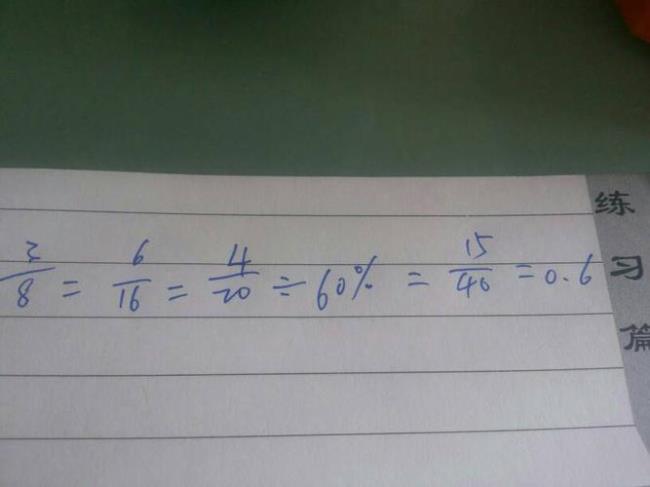 3/8 = 6/16 = 4/20 ÷ 60% = 15/40 = 0.6
练
习
篇